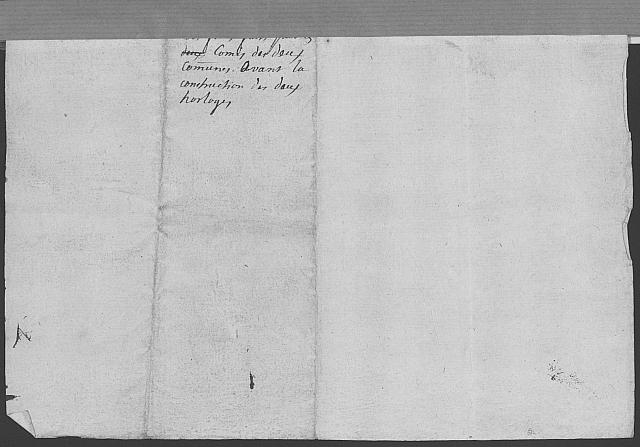 deux Comes des deux
Comunes. Avant la
construction des deux
horloges